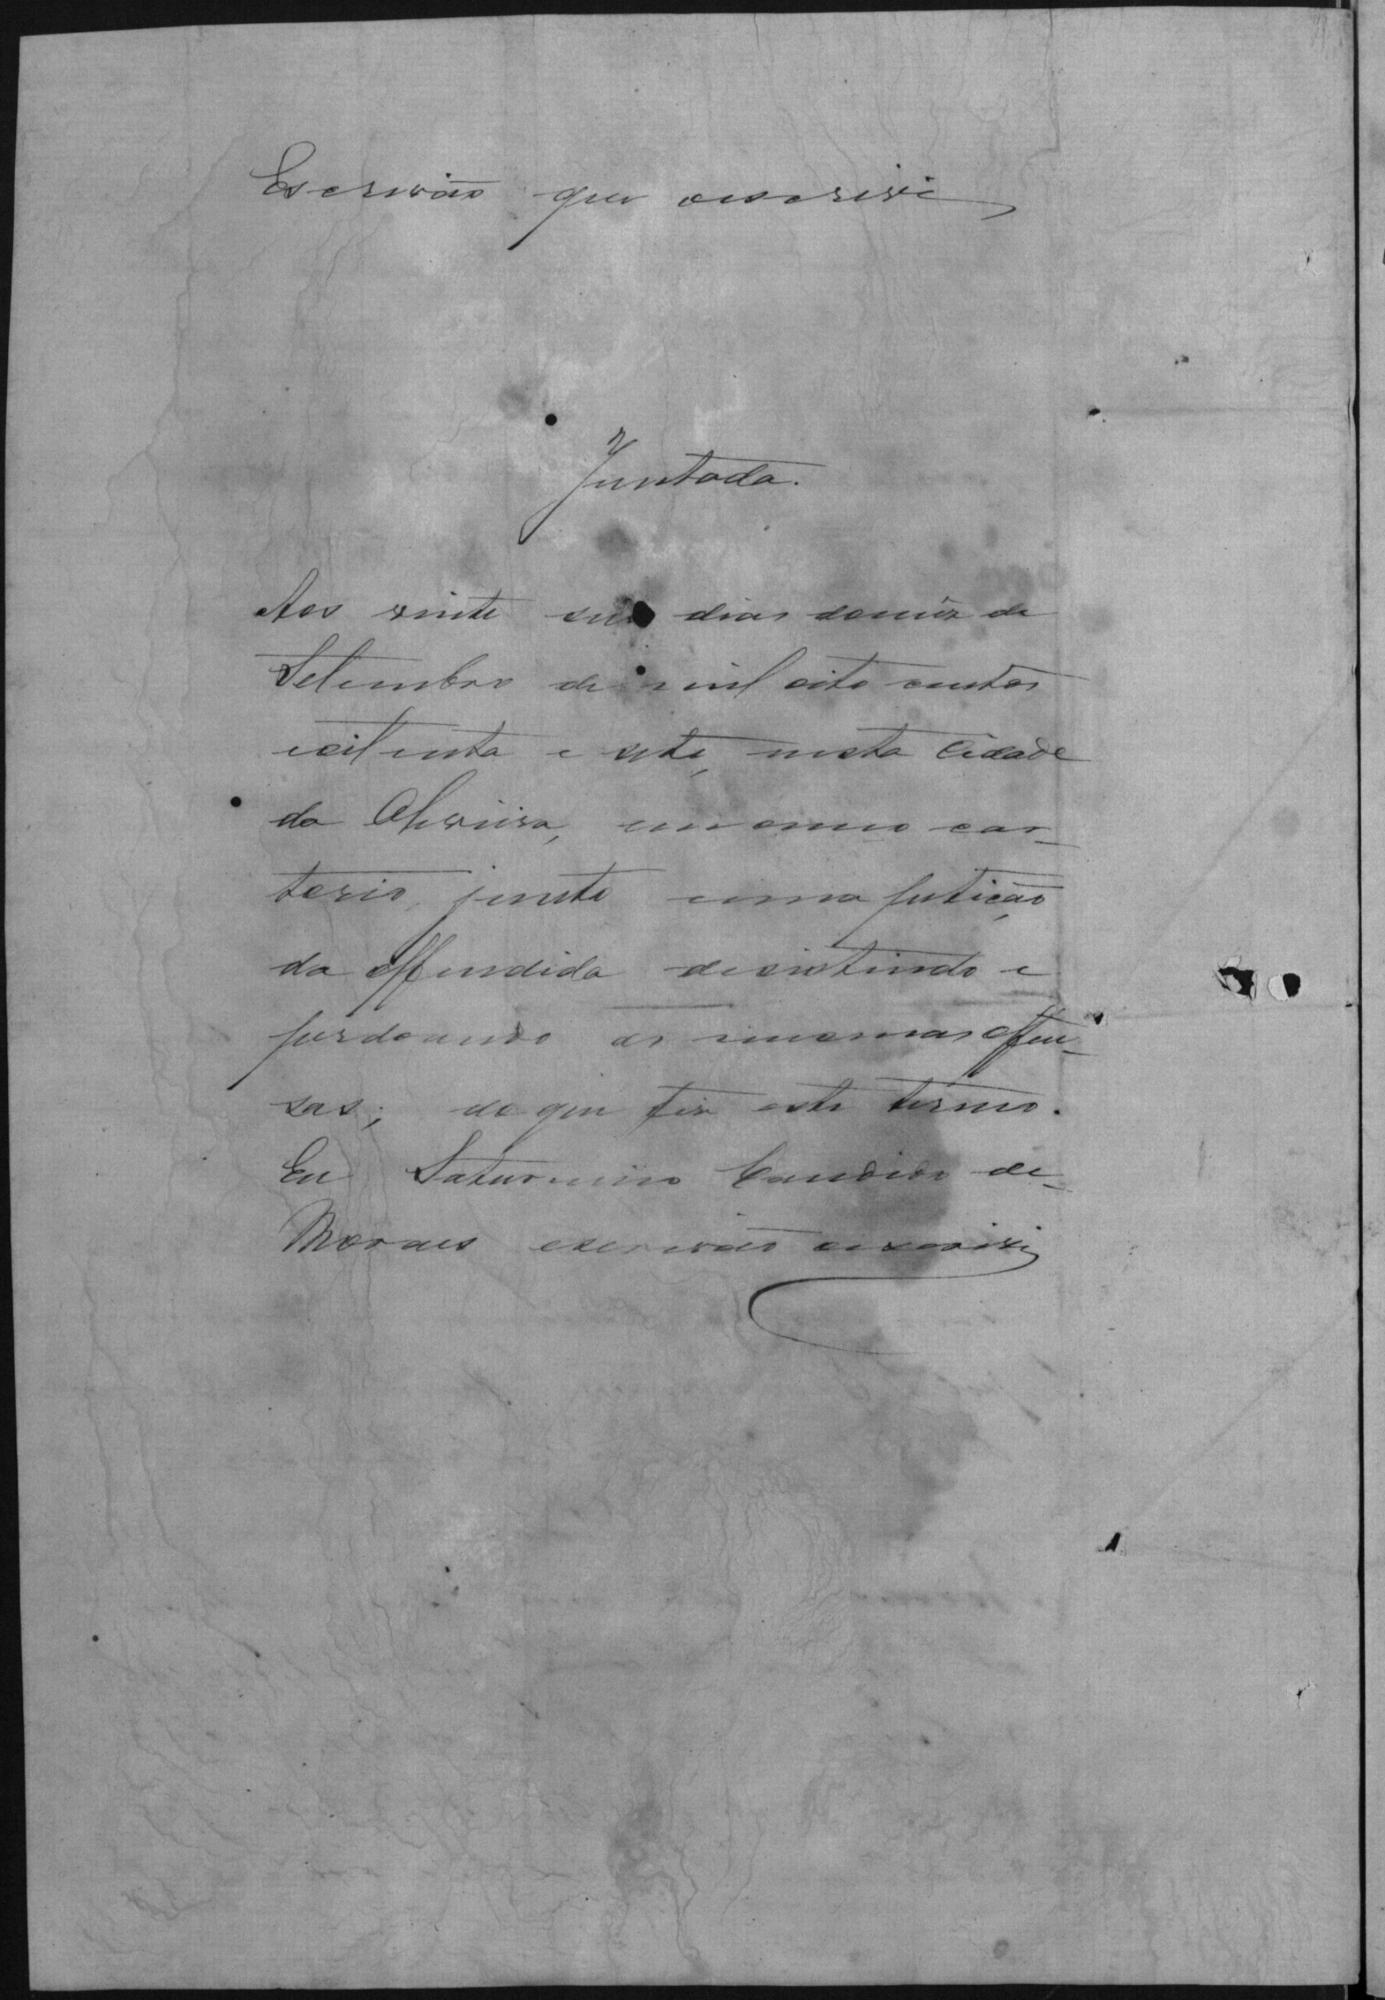 Escrivão que oescrivi
Juntada.
Aos vinte seis dias domez de
Setembro de mil oito centos
eoitenta e sete, nesta Cidade
da Oliveira, em omeo car-
torio, junto uma petição
da offendida desistindo e
perdoando as mesmas offen-
sas; do que fiz este termo.
Eu Saturnino Candido de-
Moraes escrivão oescrivi